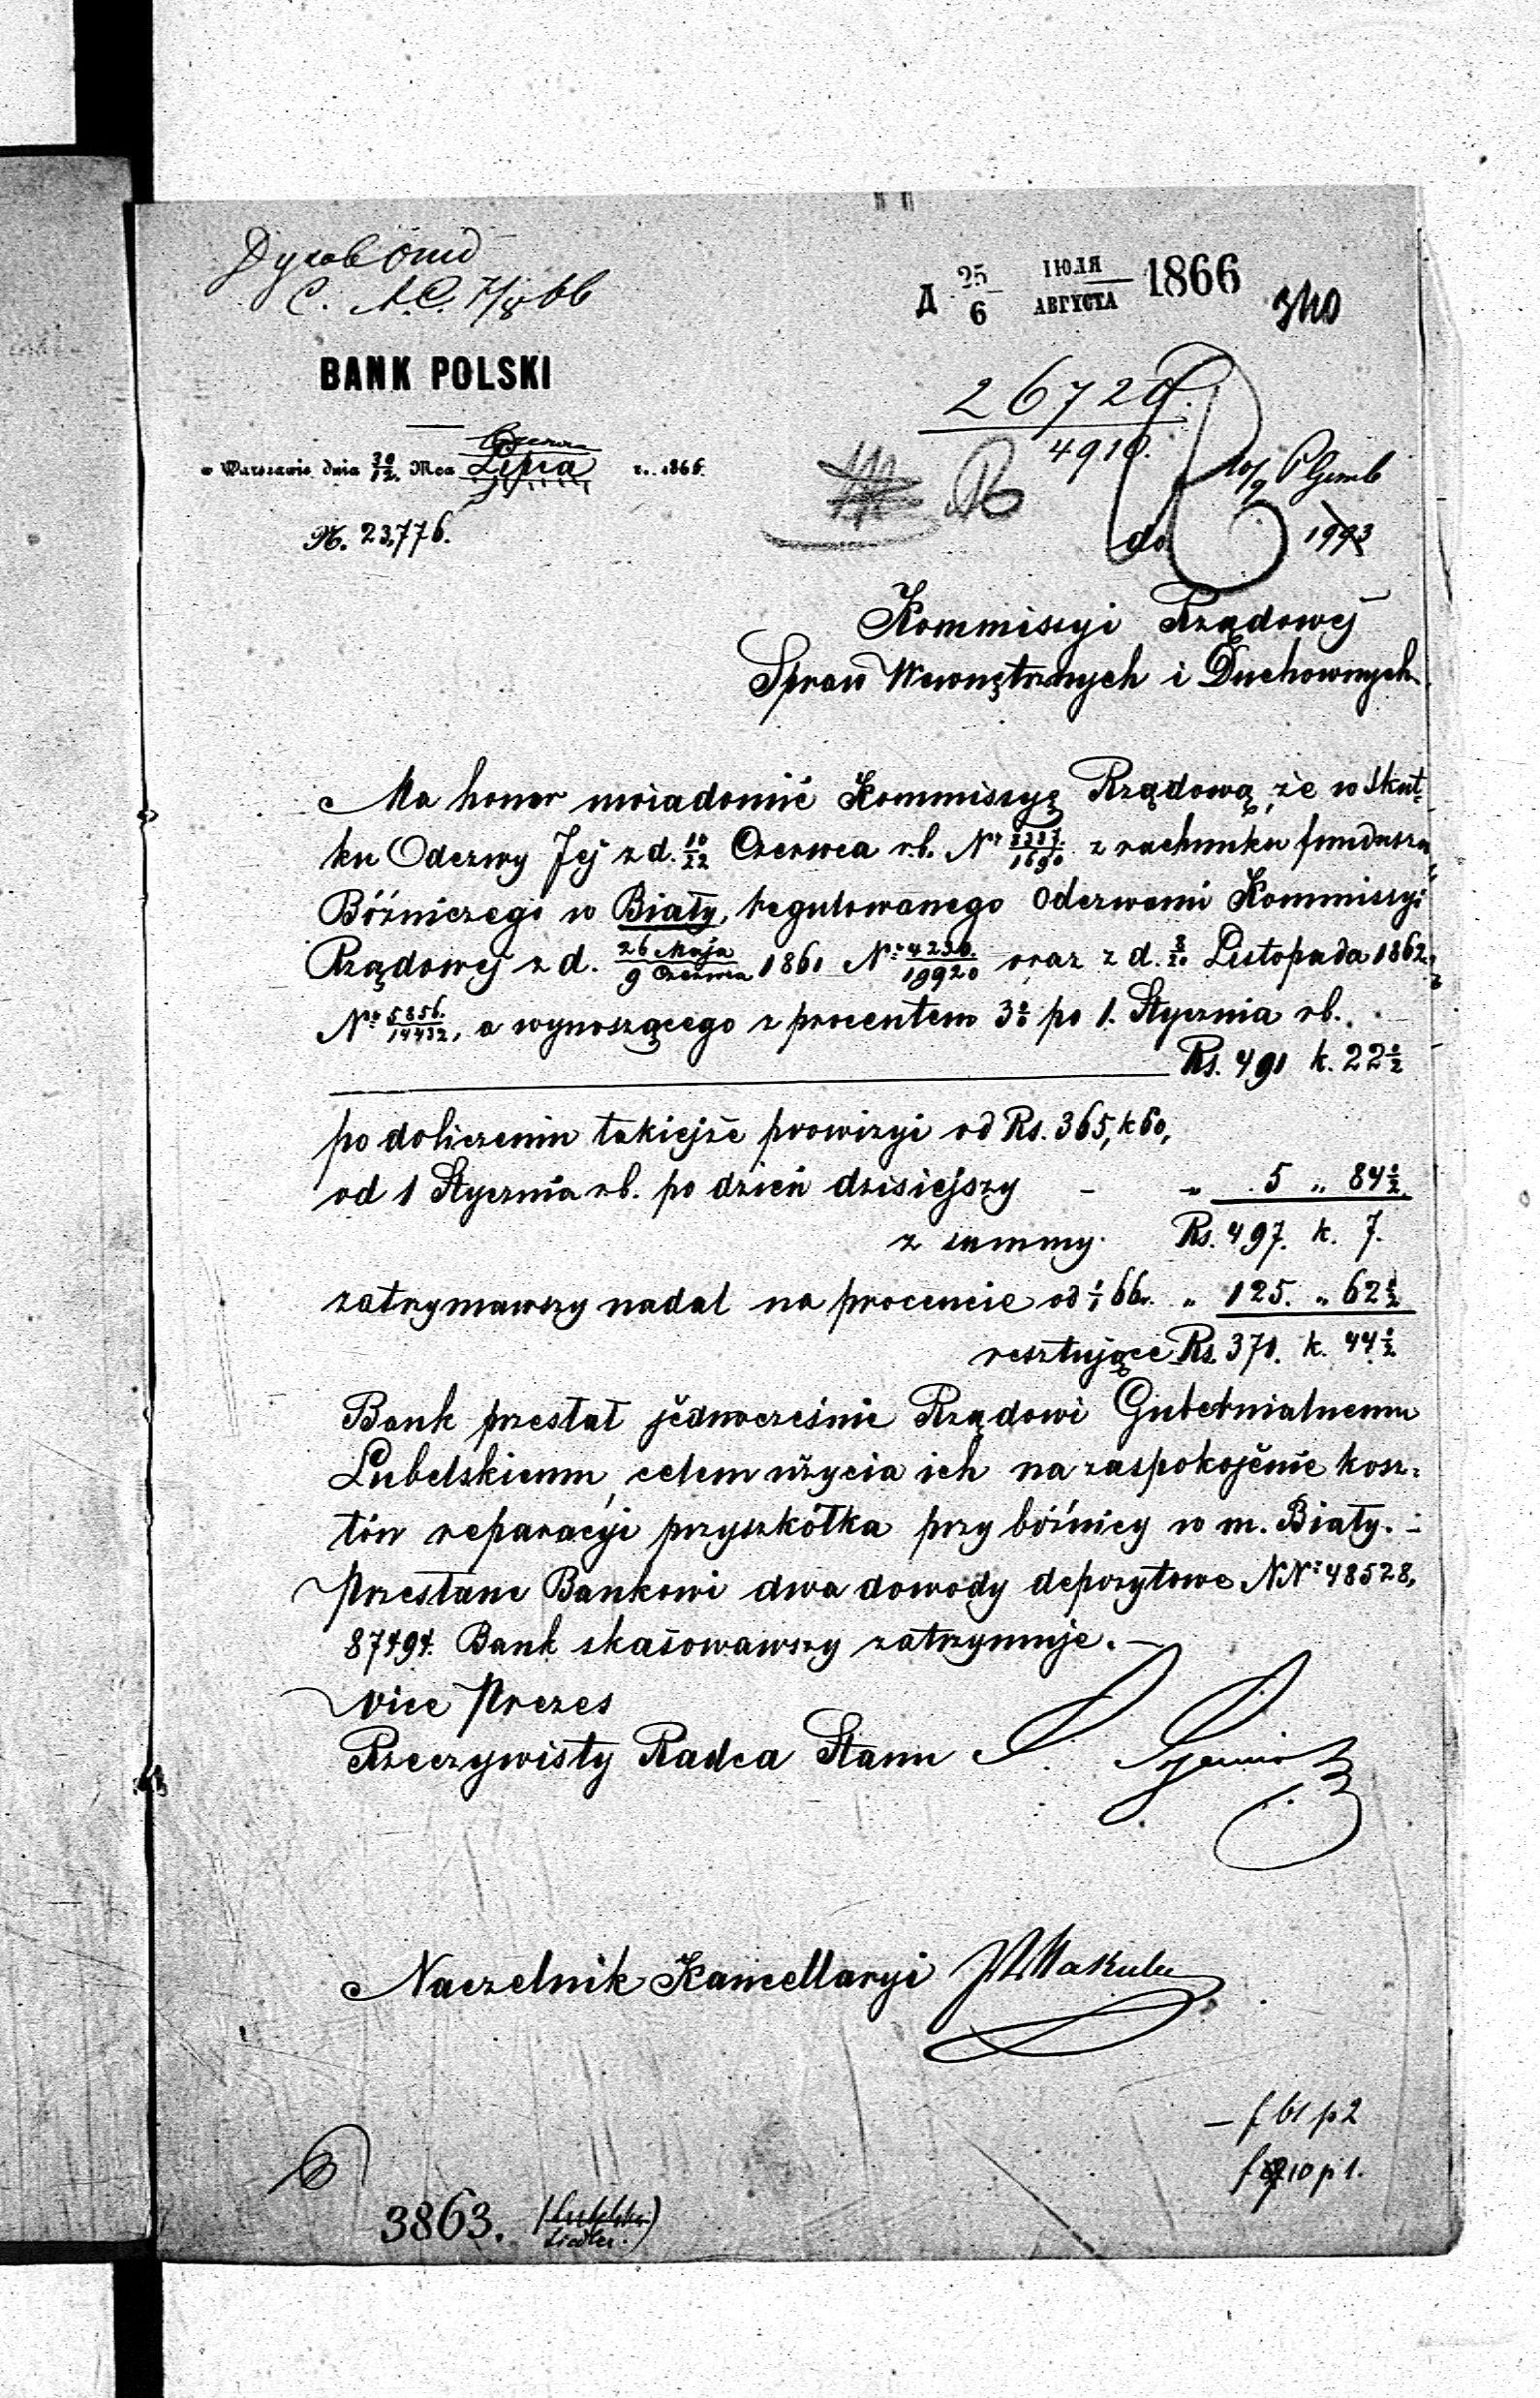 Д 25/6 ІЮЛЯ/АВГУСТА 1866
340
BANK POLSKI
26720
4910.
w Warszawie dnia 30/12. Mca Czerwca/Lipca r. 1866.
N. 23,776.
do
1993
Kommissyi Rządowej
Spraw Wewnętrznych i Duchownych
Ma honor uwiadomić Kommissyę Rządową, że w skut-
ku Odezwy Jej z d. 10/22 Czerwca r.b. Nr 2337/1690 z rachunku funduszu
Bóżniczego w Biały, regulowanego Odezwami Kommissyi
Rządowej z d. 26 Maja/9 Czerwca 1861 Nr 4230./19920 oraz z d. 8/20 Listopada 1862 r.
Nr 5856./14432, a wynoszącego z procentem 3% po 1. Stycznia rb.
Rs. 491 k. 22½
po doliczeniu takiejże prowizyi od Rs. 365, k 60,
od 1 Stycznia rb. po dzień dzisiejszy - „ 5 „ 84½
z summy Rs. 497. k. 7.
zatrzymawszy nadal na procencie od 1/1 66. „ 125. „ 62½
resztujące Rs. 371. k. 44½
Bank przesłał jednocześnie Rządowi Gubernialnemu
Lubelskiemu, celem użycia ich na zaspokojenie kosz-
tów reparacyi przyszkółka przy bóżnicy w m. Biały. -
Przesłane Bankowi dwa dowody depozytowe NNr 48528,
87494. Bank skasowawszy zatrzymuje. -
Vice Prezes
Rzeczywisty Radca Stanu
Naczelnik Kancellaryi
- f 61 p 2
f 10 p 1.
3863.